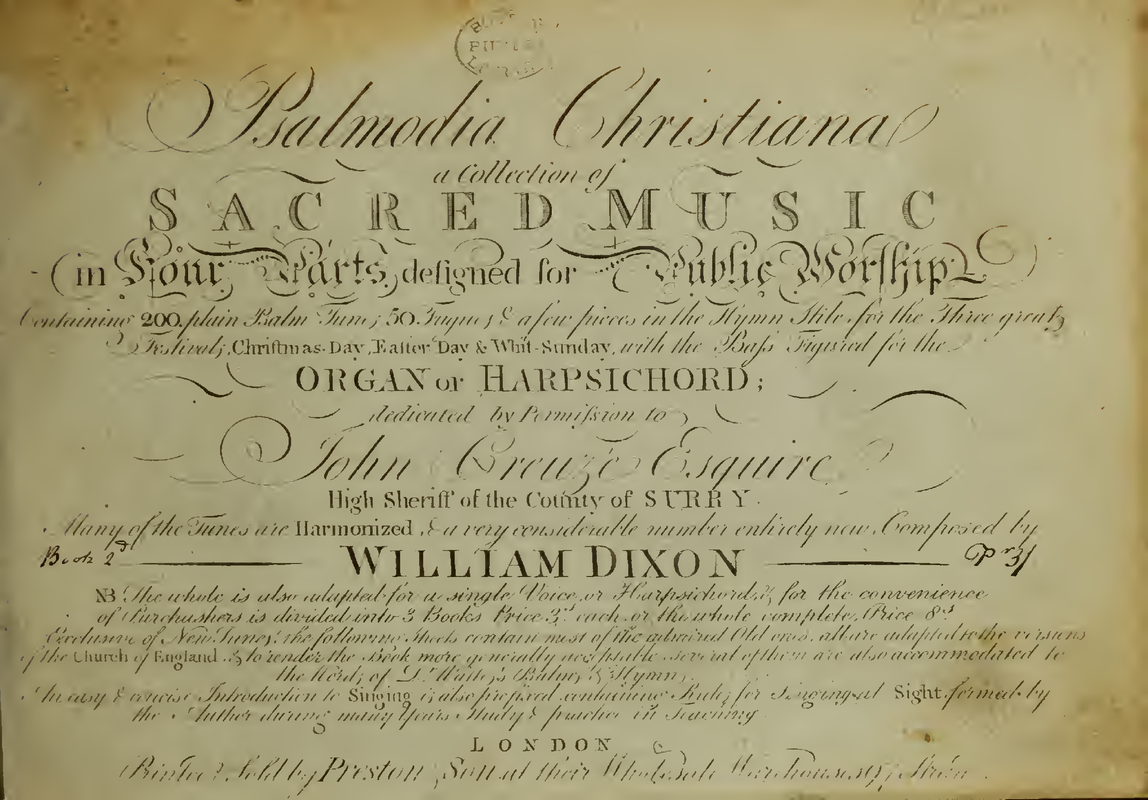 Psalmodia Christiana
a Collection of
SACRED MUSIC
in Four Parts, designed for Public Worship
Containing 200 plain Psalm Tunes, 50 Fugues, & a few pieces in the Hymn Stile for the Three great
Festivals, Christmas-Day, Easter Day & Whit-Sunday, with the Bass Figured for the
ORGAN or HARPSICHORD;
dedicated by Permission to
John Creuzé Esquire
High Sheriff of the County of SURRY.
Many of the Tunes are Harmonized, & a very considerable number entirely new Composed by
Book 2d WILLIAM DIXON Pr 3/
NB The whole is also adapted for a single Voice or Harpsichord, & for the convenience
of Purchashers is divided into 3 Books Price 3s each or the whole complete, Price 8s
Exclusive of New Tunes, the following Sheets contain most of the admired Old ones, all are adapted to the versions
of the Church of England, & to render the Book more generally acceptable several of them are also accommodated to
the Words of Dr Watts's Psalms & Hymns,
An easy & concise Introduction to Singing is also prefixed containing Rules for Singing at Sight, formed by
the Author during many Years Study & practice in Teaching
LONDON
Printed & Sold by Preston & Son at their Wholesale Warehouses, Strand